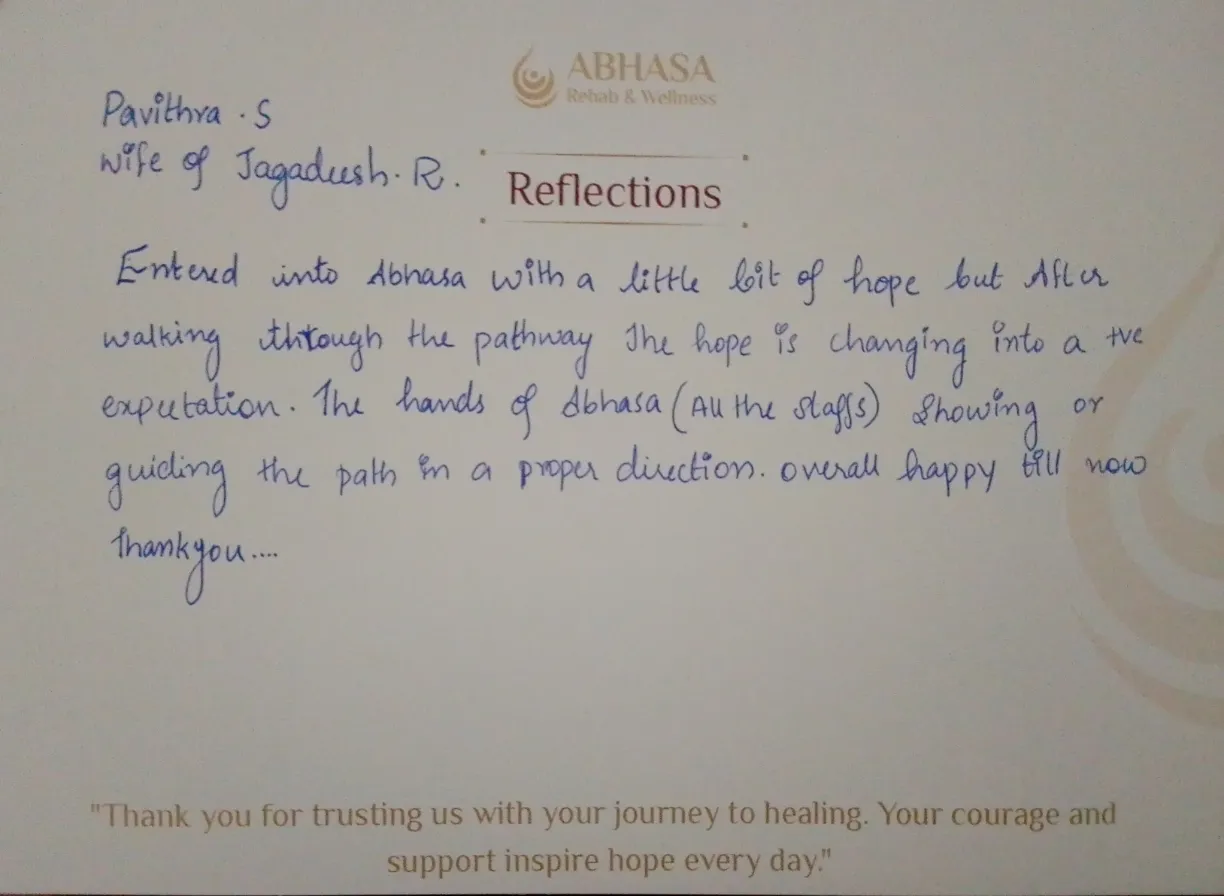 ABHASA
Rehab & Wellness
Pavithra . S
wife of Jagadeesh . R .
Reflections
Entered into Abhasa with a little bit of hope but After
walking through the pathway The hope is changing into a +ve
expectation. The hands of Abhasa (All the staffs) showing or
guiding the path in a proper direction. overall happy till now
Thankyou....
"Thank you for trusting us with your journey to healing. Your courage and
support inspire hope every day."